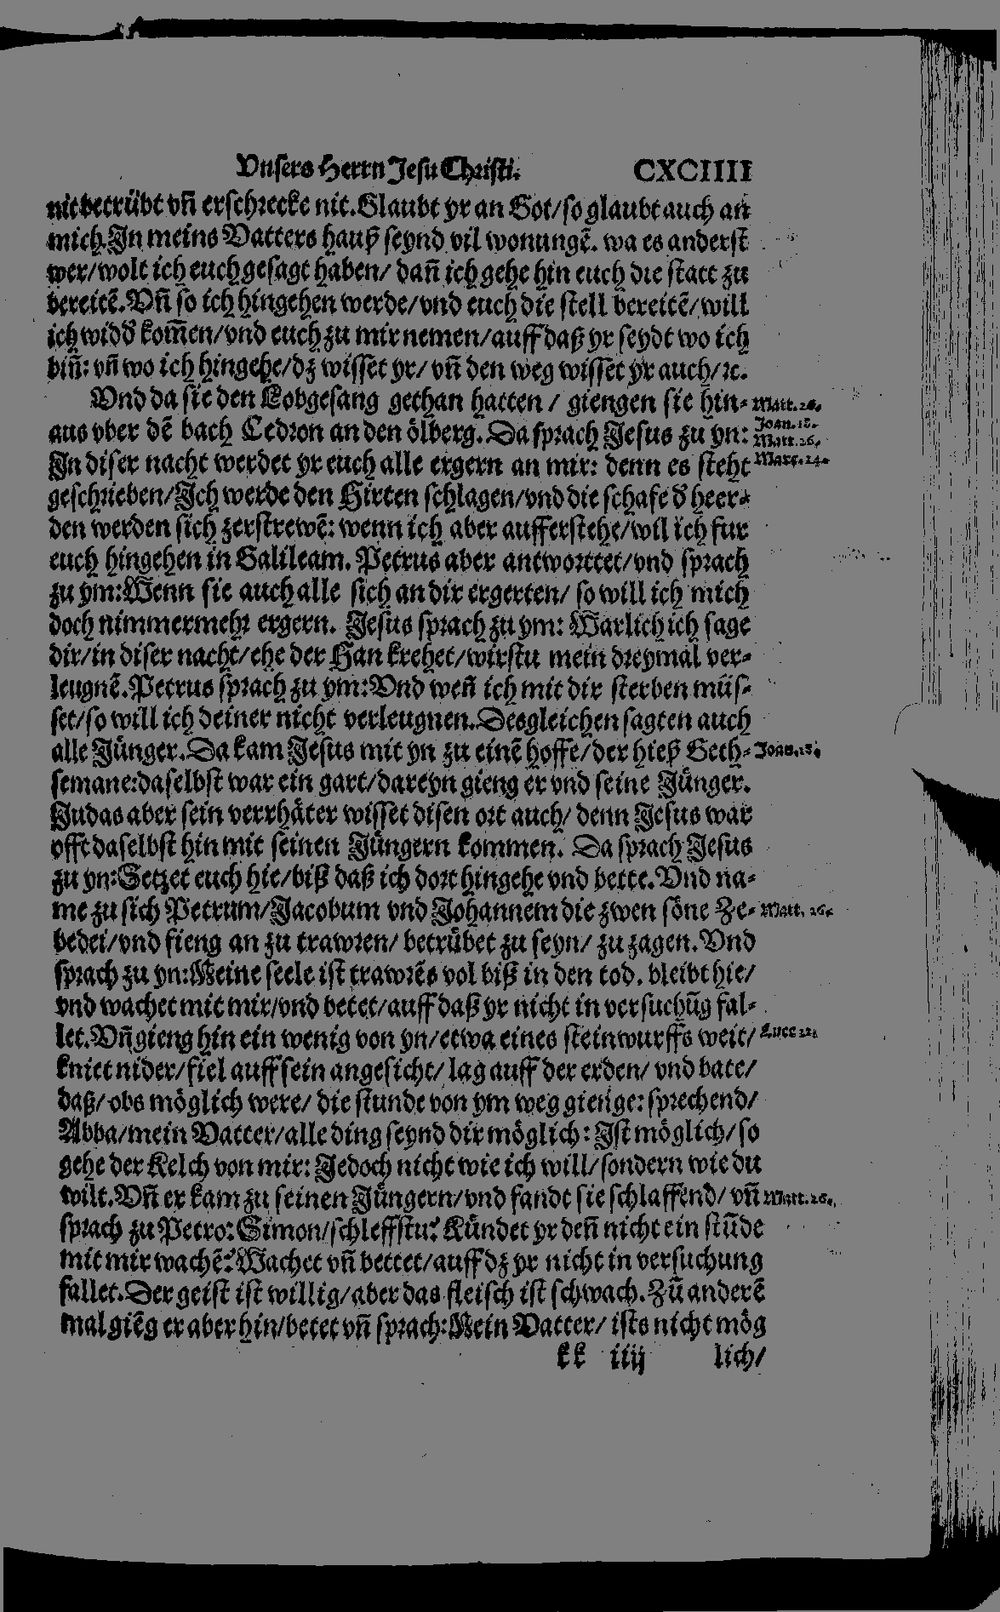 Vnsers Herrn Jesu Christi. CXCIIII
nit betrübt vñ erschrecke nit. Glaubt yr an Got/ so glaubt auch an
mich. In meins Vatters hauß seynd vil wonungẽ. wa es anderst
wer/ wolt ich euch gesagt haben/ dañ ich gehe hin euch die statt zu
bereitẽ. Vñ so ich hingehen werde/ vnd euch die stell bereitẽ/ will
ich widd̕ kom̃en/ vnd euch zu mir nemen/ auff daß yr seydt wo ich
biñ: vñ wo ich hingehe/ dz wisset yr/ vñ den weg wisset yr auch/ ꝛc.
Vnd da sie den Lobgesang gethan hatten / giengen sie hin- Matt.26.
aus vber dẽ bach Cedron an den ölberg. Da sprach Jesus zu yn: Joan.18. Matt.26.
In diser nacht werdet yr euch alle ergern an mir: denn es steht Marc.14.
geschrieben/ Ich werde den Hirten schlagen/ vnd die schafe d̕ heer-
den werden sich zerstrewẽ: wenn ich aber aufferstehe/ wil ich fur
euch hingehen in Galileam. Petrus aber antworttet/ vnd sprach
zu ym: Wenn sie auch alle sich an dir ergerten/ so will ich mich
doch nimmermehr ergern. Jesus sprach zu ym: Warlich ich sage
dir/ in diser nacht/ ehe der Han krehet/ wirstu mein dreymal ver-
leugnẽ. Petrus sprach zu ym: Vnd weñ ich mit dir sterben müs-
set/ so will ich deiner nicht verleugnen. Desgleichen sagten auch
alle Jünger. Da kam Jesus mit yn zu einẽ hoffe/ der hieß Geth- Joan.18.
semane: daselbst war ein gart/ dareyn gieng er vnd seine Jünger.
Judas aber sein verrhäter wisset disen ort auch/ denn Jesus war
offt daselbst hin mit seinen Jüngern kommen. Da sprach Jesus
zu yn: Setzet euch hie/ biß daß ich dort hingehe vnd bette. Vnd na-
me zu sich Petrum/ Jacobum vnd Johannem die zwen söne Ze- Matt. 26.
bedei/ vnd fieng an zu trawren/ betrübet zu seyn/ zu zagen. Vnd
sprach zu yn: Meine seele ist trawrẽs vol biß in den tod. bleibt hie/
vnd wachet mit mir/ vnd betet/ auff daß yr nicht in versuchũg fal-
let. Vñ gieng hin ein wenig von yn/ etwa eines steinwurffs weit/ Luce 22.
kniet nider/ fiel auff sein angesicht/ lag auff der erden/ vnd bate/
daß/ obs möglich were/ die stunde von ym weg gienge: sprechend/
Abba/ mein Vatter/ alle ding seynd dir möglich: Ist möglich/ so
gehe der Kelch von mir: Jedoch nicht wie ich will/ sondern wie du
wilt. Vñ er kam zu seinen Jüngern/ vnd fandt sie schlaffend/ vñ Matt.26.
sprach zu Petro: Simon/ schleffstu? Kündet yr deñ nicht ein stũde
mit mir wachẽ? Wachet vñ bettet/ auff dz yr nicht in versuchung
fallet. Der geist ist willig/ aber das fleisch ist schwach. Zũ anderẽ
mal giẽg er aber hin/ betet vñ sprach: Mein Vatter/ ists nicht mög
kk iiij lich/